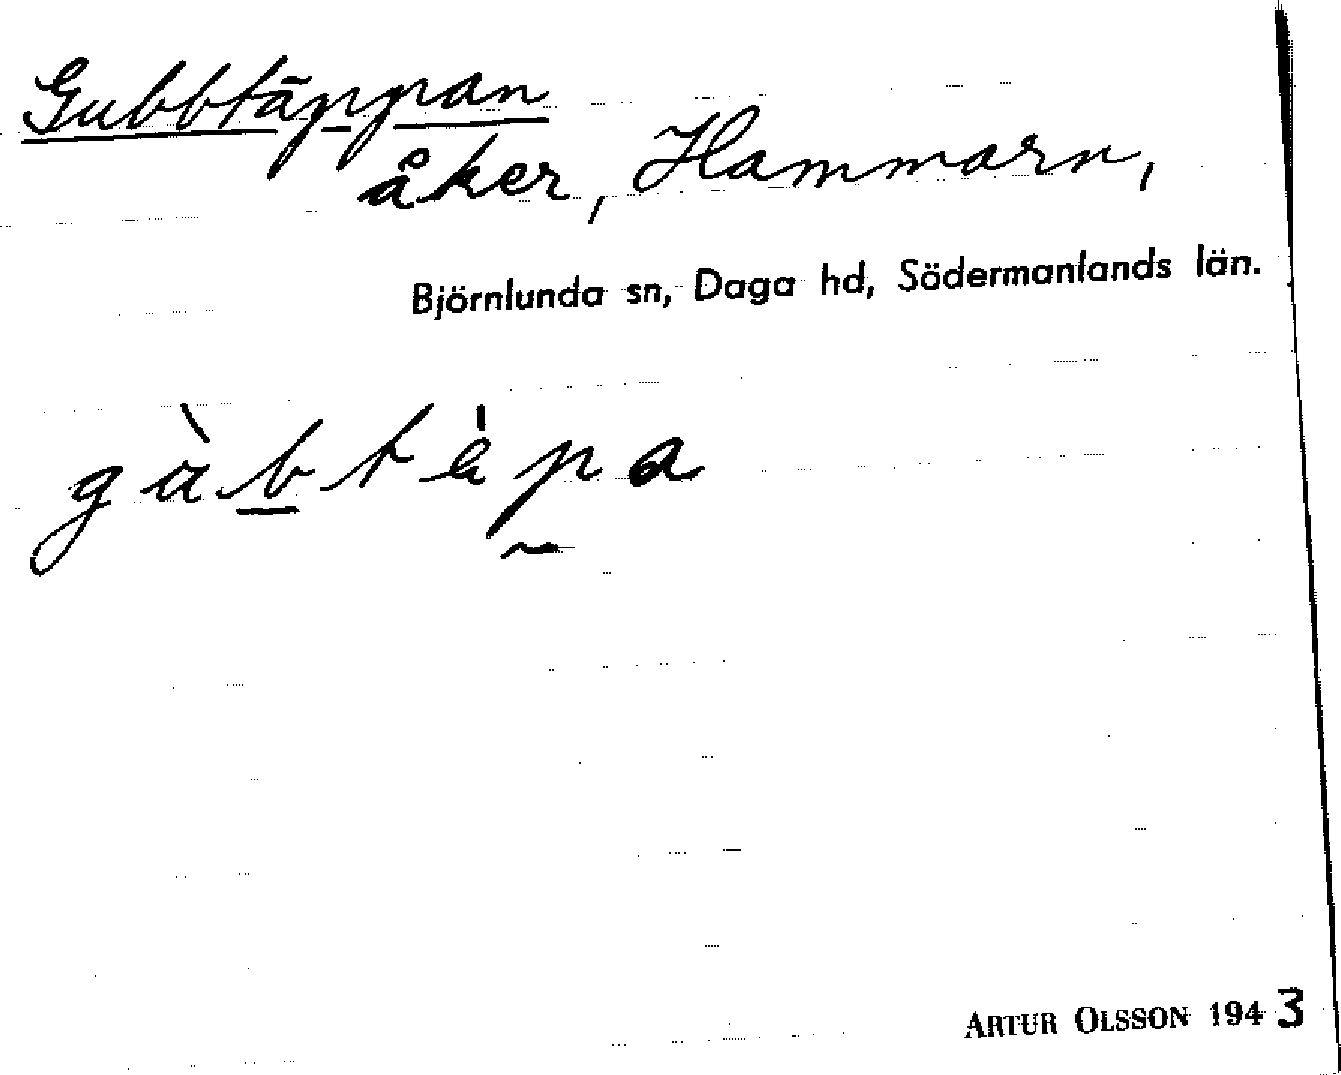 Gubbtäppan
åker, Hammarn,
Björnlunda sn, Daga hd, Södermanlands län.
gùb̲tèp̰a
ARTUR OLSSON 1943